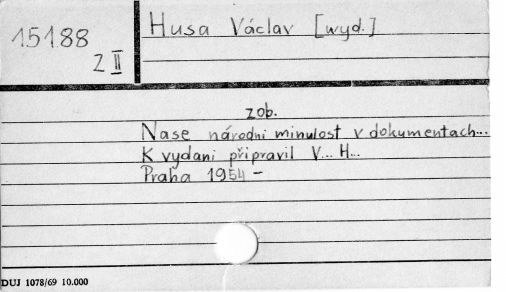 15188
Z II
Husa Václav [wyd.]
zob.
Nase národní minulost v dokumentach...
K vydani připravil V... H...
Praha 1954 -
DUJ 1078/69 10.000